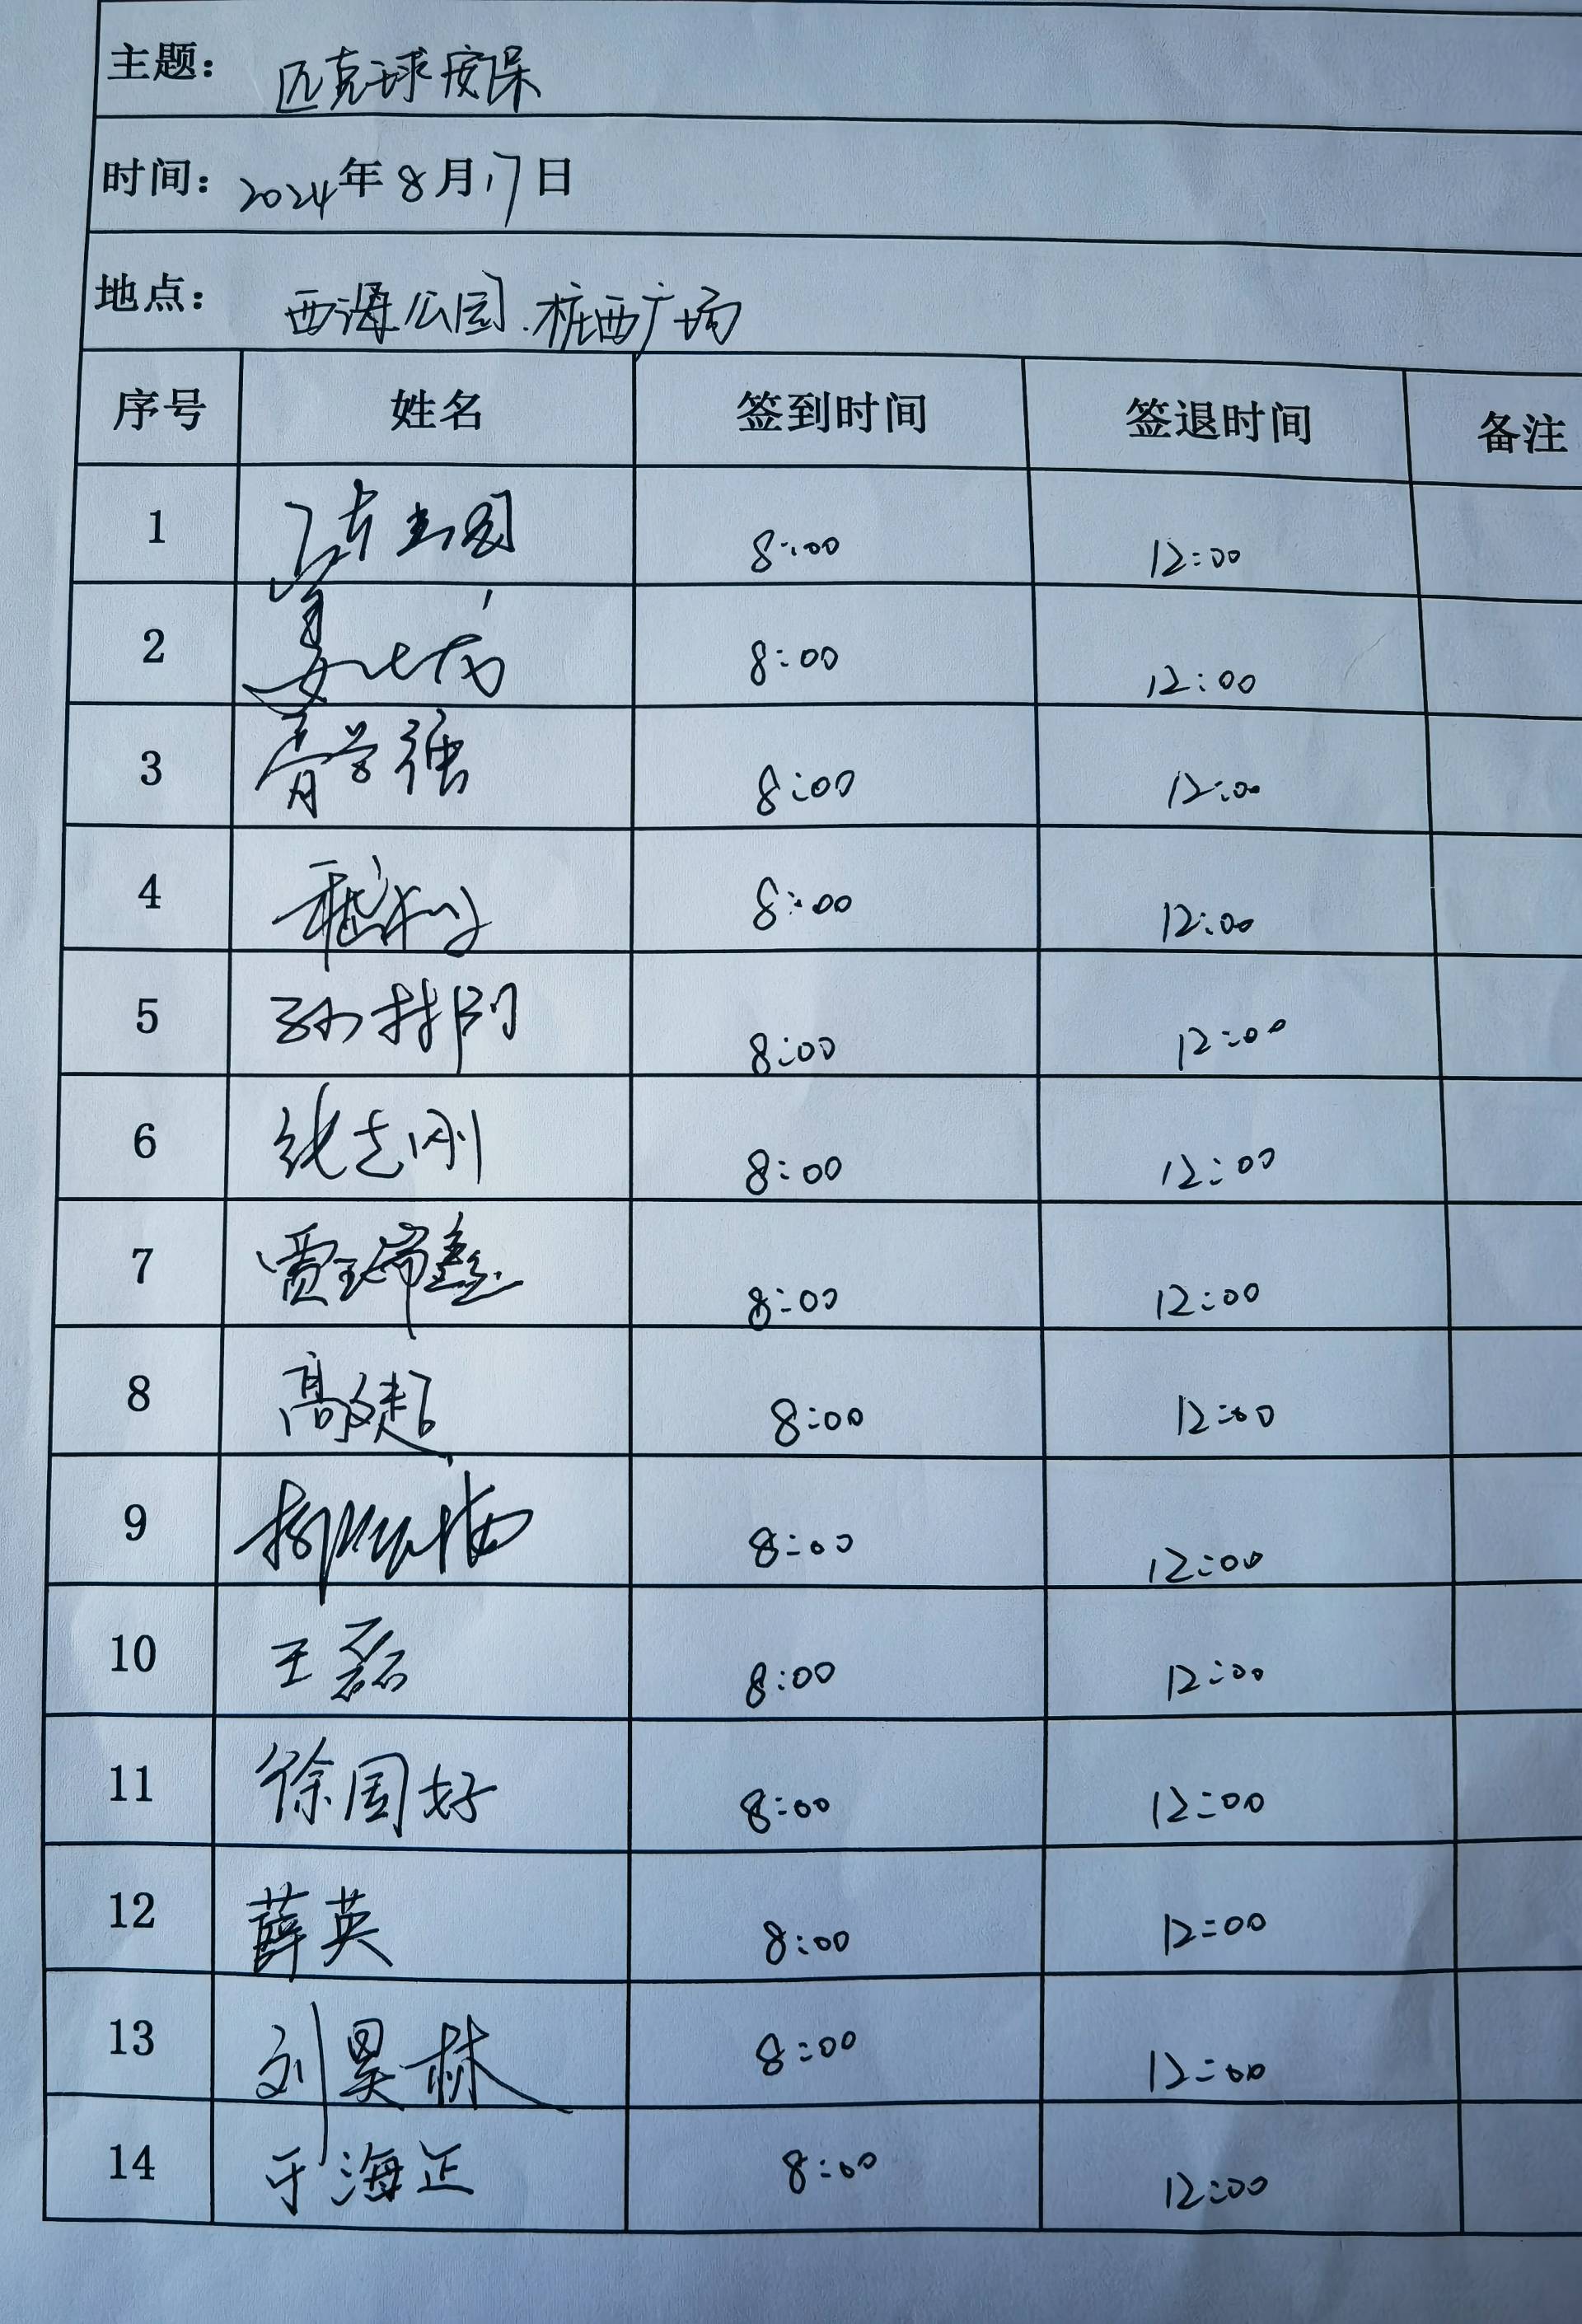 主题： 匹克球安保
时间：2024年8月17日
地点： 西海公园.桩西广场
序号 姓名 签到时间 签退时间 备注
1 8:00 12:00
2 姜 8:00 12:00
3 胥学强 8:00 12:00
4 8:00 12:00
5 孙 8:00 12:00
6 张志刚 8:00 12:00
7 贾瑞鑫 8:00 12:00
8 高文超 8:00 12:00
9 8:00 12:00
10 王磊 8:00 12:00
11 徐国好 8:00 12:00
12 薛英 8:00 12:00
13 刘昊林 8:00 12:00
14 于海正 8:00 12:00